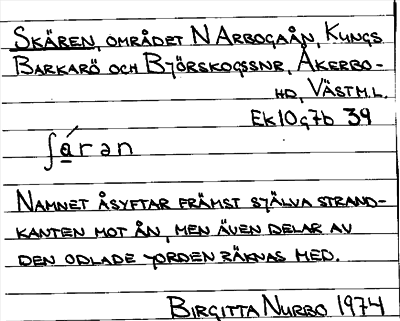 SKÄREN, OMRÅDET N ARBOGAÅN, KUNGS
BARKARÖ OCH BJÖRSKOGSSNR, ÅKERBO-
HD, VÄSTM.L.
EK10g7b 39
ʃá̱rən
NAMNET ÅSYFTAR FRÄMST SJÄLVA STRAND-
KANTEN MOT ÅN, MEN ÄVEN DELAR AV
DEN ODLADE JORDEN RÄKNAS MED.
BIRGITTA NURBO 1974